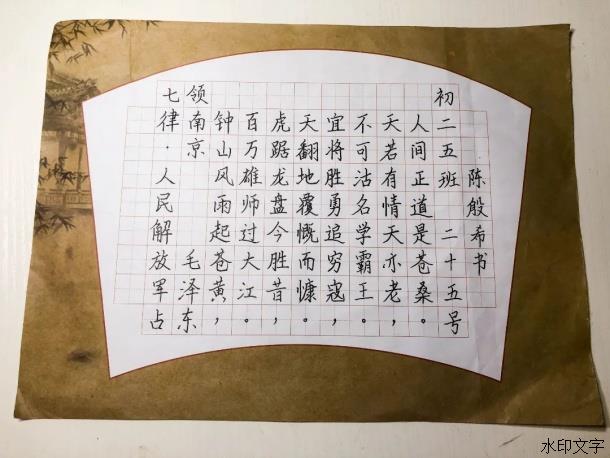 七律·人民解放军占
领南京 毛泽东
钟山风雨起苍黄，
百万雄师过大江。
虎踞龙盘今胜昔，
天翻地覆慨而慷。
宜将胜勇追穷寇，
不可沽名学霸王。
天若有情天亦老，
人间正道是苍桑。
初二五班 二十五号
陈殷希书
水印文字